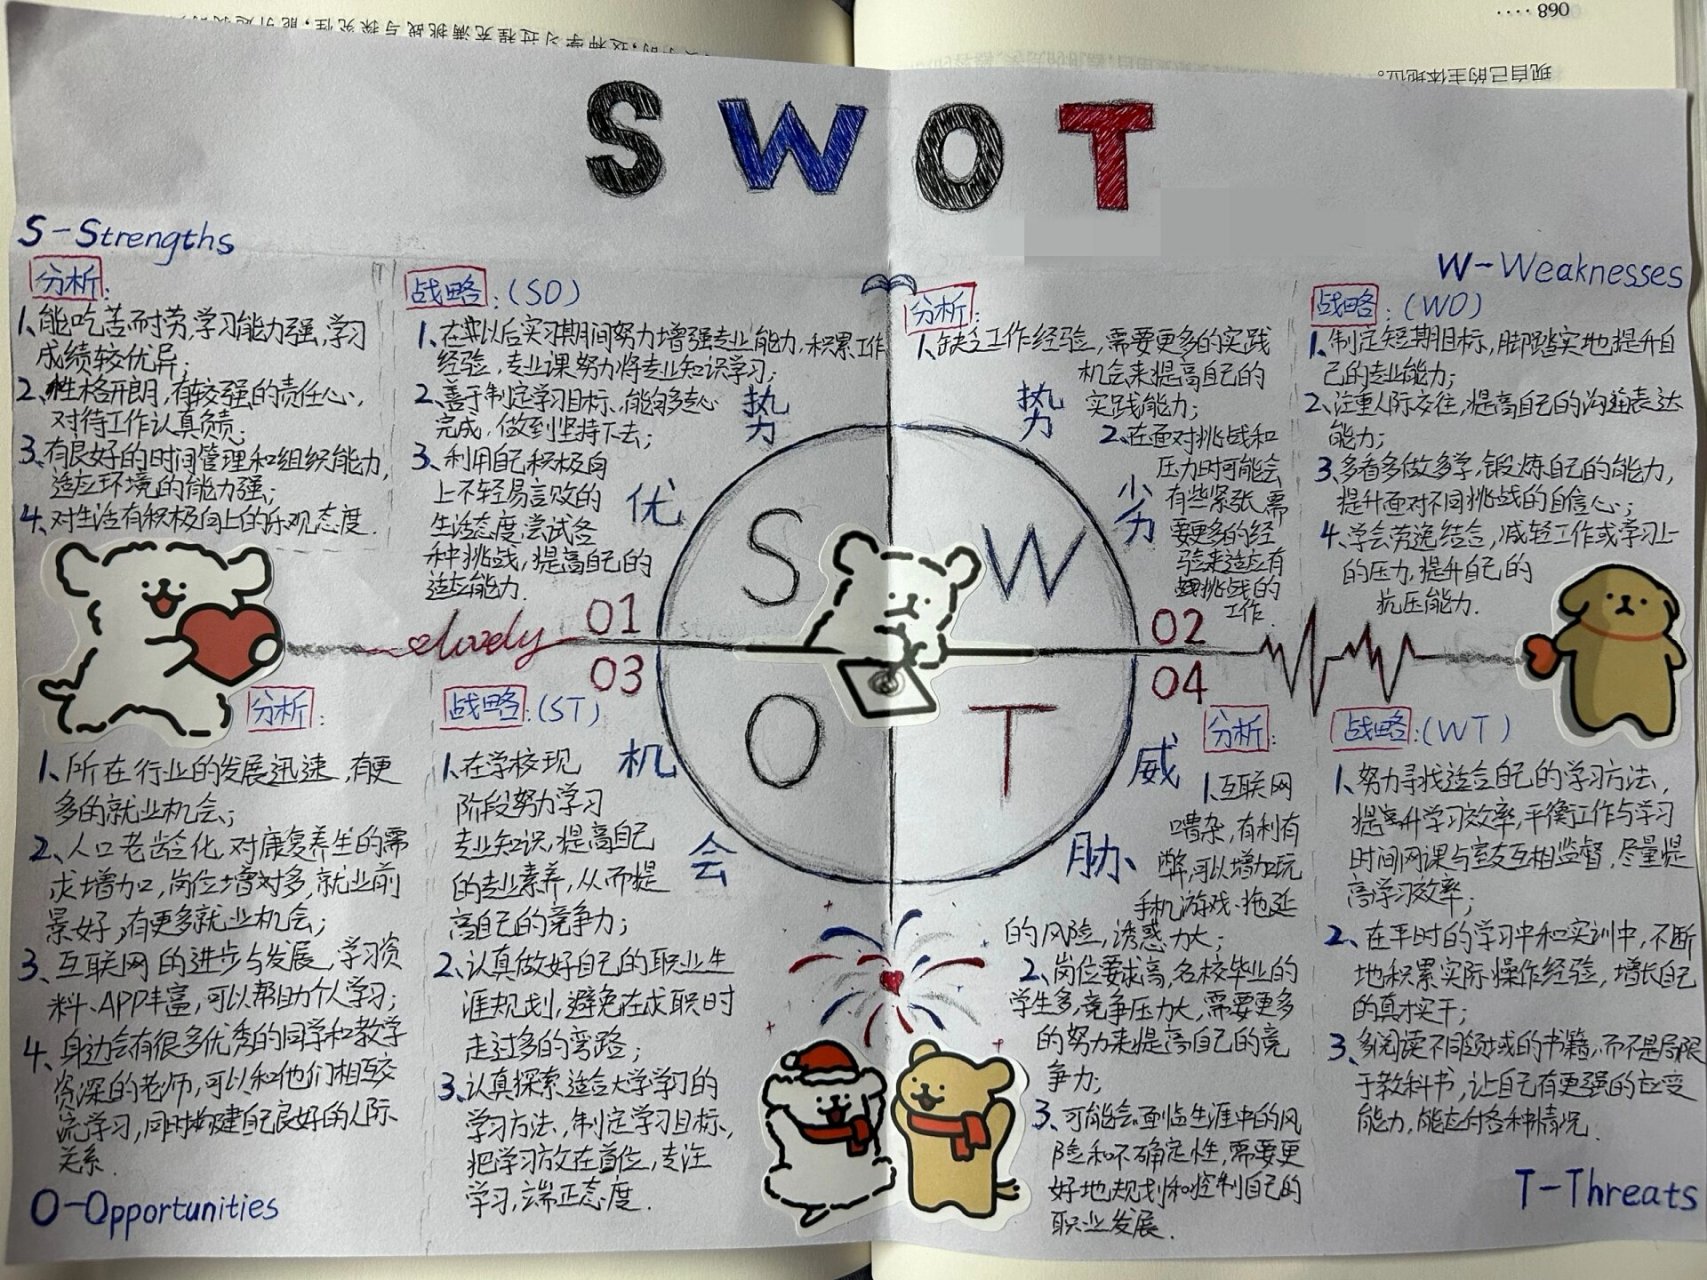 068 ····
现自己的主体地位。
SWOT
S-Strengths
分析:
1、能吃苦而耐劳,学习能力强,学习
成绩较优异;
2、性格开朗,有较强的责任心,
对待工作认真负责;
3、有良好的时间管理和组织能力,
适应环境的能力强;
4、对生活有积极向上的乐观态度.
战略:(SO)
1、在以后实习期间努力增强专业能力,积累工作
经验,专业课努力将专业知识学习;
2、善于制定学习目标,能够专心
完成,做到坚持下去;
3、利用自己积极向
上不轻易言败的
生活态度,尝试各
种挑战,提高自己的
适应能力.
优
势
W-Weaknesses
分析:
1、缺乏工作经验,需要更多的实践
机会来提高自己的
实践能力;
2、在面对挑战和
压力时可能会
有些紧张,需
要更多的经
验来适应有
挑战的
工作.
战略:(WO)
1、制定短期目标,脚踏实地提升自
己的专业能力;
2、注重人际交往,提高自己的沟通表达
能力;
3、多看多做多学,锻炼自己的能力,
提升面对不同挑战的自信心;
4、学会劳逸结合,减轻工作或学习上
的压力,提升自己的
抗压能力.
劣
势
S
W
O
T
lovely
01
02
03
04
分析:
1、所在行业的发展迅速,有更
多的就业机会;
2、人口老龄化,对康复养生的需
求增加,岗位增对多,就业前
景好,有更多就业机会;
3、互联网的进步与发展,学习资
料、APP丰富,可以帮助个人学习;
4、身边会有很多优秀的同学和教学
资深的老师,可以和他们相互交
流学习,同时构建自己良好的人际
关系.
O-Opportunities
战略:(ST)
1、在学校现
阶段努力学习
专业知识,提高自己
的专业素养,从而提
高自己的竞争力;
2、认真做好自己的职业生
涯规划,避免在求职时
走过多的弯路;
3、认真探索适合大学学习的
学习方法,制定学习目标,
把学习放在首位,专注
学习,端正态度.
机
会
威
胁
分析:
1、互联网
嘈杂,有利有
弊,可以增加玩
手机游戏、拖延
的风险,诱惑力大;
2、岗位要求高,名校毕业的
学生多,竞争压力大,需要更多
的努力来提高自己的竞
争力;
3、可能会面临生涯中的风
险和不确定性,需要更
好地规划和控制自己的
职业发展.
战略:(WT)
1、努力寻找适合自己的学习方法,
提升学习效率,平衡工作与学习
时间网课与室友互相监督,尽量提
高学习效率;
2、在平时的学习中和实训中,不断
地积累实际操作经验,增长自己
的真才实干;
3、多阅读不同领域的书籍,而不是局限
于教科书,让自己有更强的应变
能力,能应付各种情况.
T-Threats